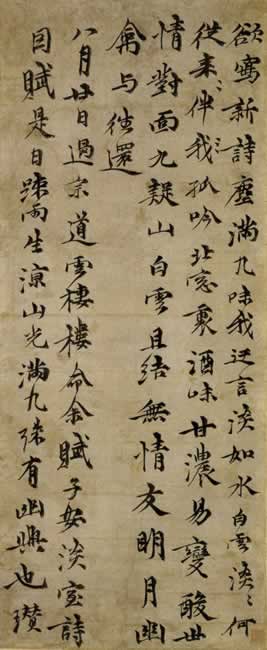 欲寫新詩塵滿几味我迂言淡如水白雲淡〻何
從來〻伴我孤吟北窓裏酒味甘濃易變酸世
情對面九疑山白雲且結無情友明月幽
禽与往還
八月廿日過宗道雲樓樓命余賦子安淡室詩
因賦是日疎雨生涼山光滿几殊有幽興也瓚